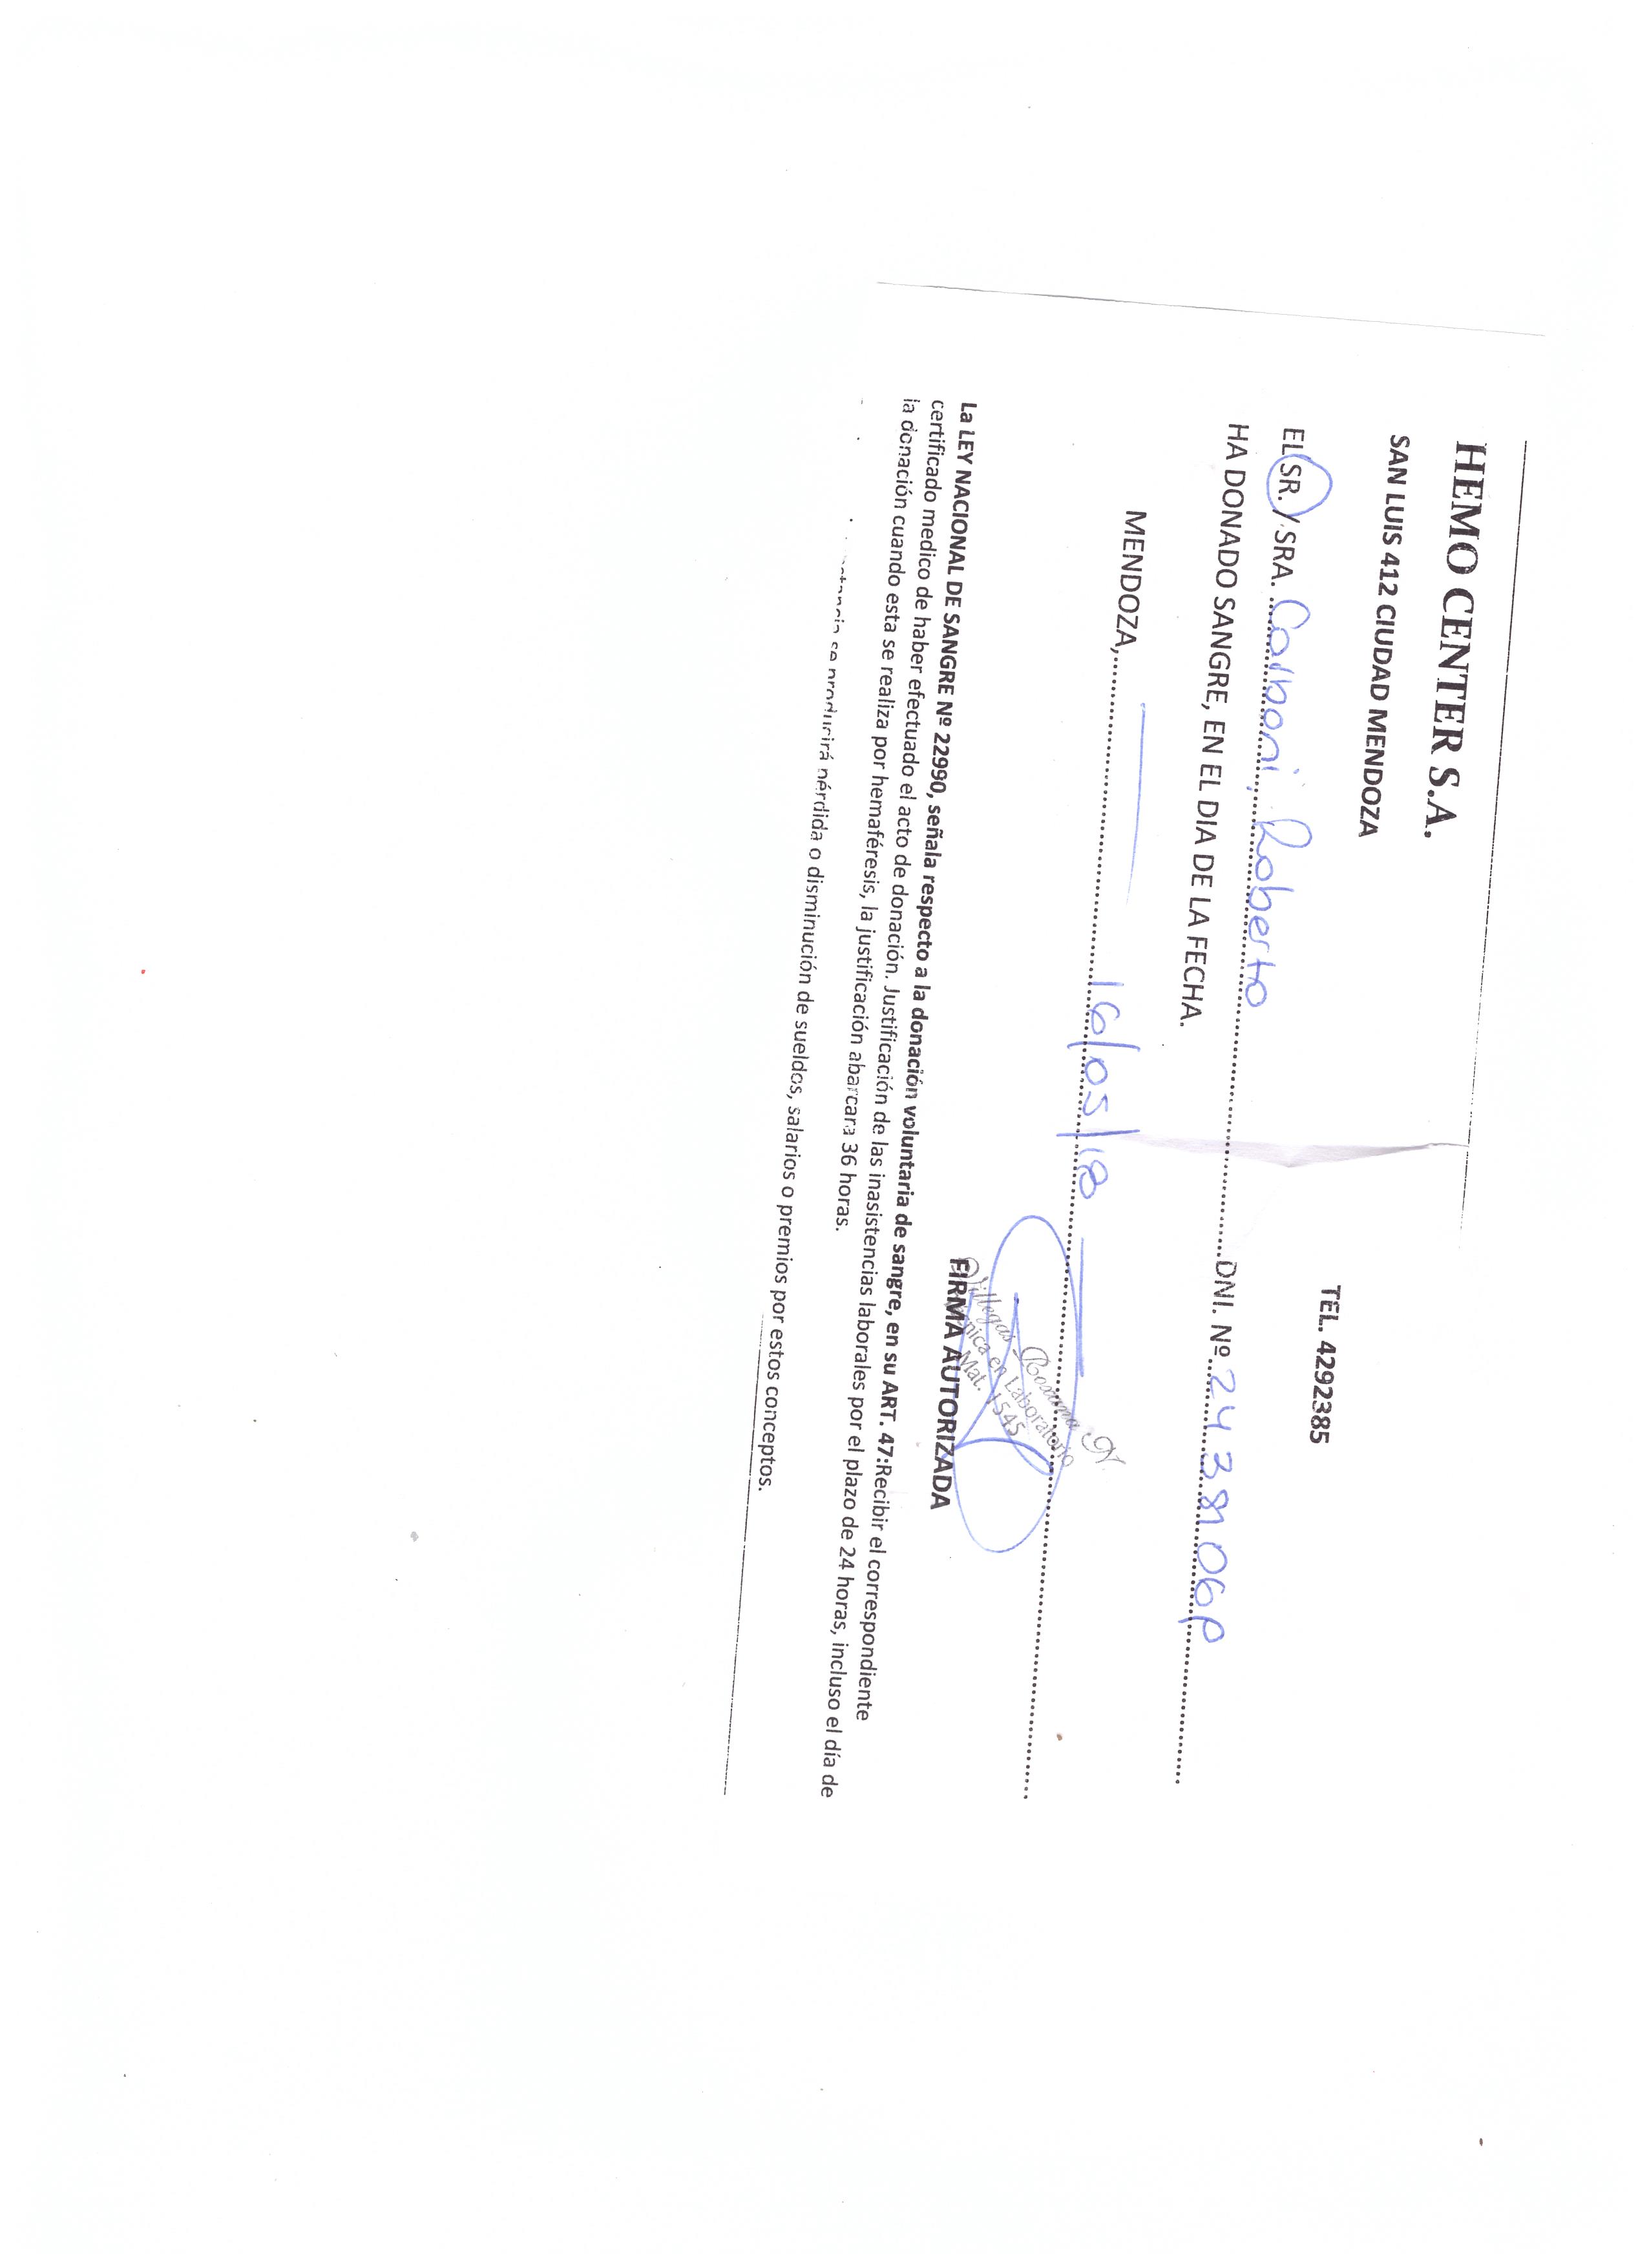 HEMO CENTER S.A.
SAN LUIS 412 CIUDAD MENDOZA TEL. 4292385
EL SR. / SRA. Carboni, Roberto DNI. Nº
HA DONADO SANGRE, EN EL DIA DE LA FECHA.
MENDOZA, 16/05/18
Villegas Roxana N
en Laboratorio
Mat. 1545
FIRMA AUTORIZADA
La LEY NACIONAL DE SANGRE Nº 22990, señala respecto a la donación voluntaria de sangre, en su ART. 47:Recibir el correspondiente
certificado medico de haber efectuado el acto de donación. Justificación de las inasistencias laborales por el plazo de 24 horas, incluso el día de
la donación cuando esta se realiza por hemaféresis, la justificación abarcara 36 horas.
se producirá pérdida o disminución de sueldos, salarios o premios por estos conceptos.